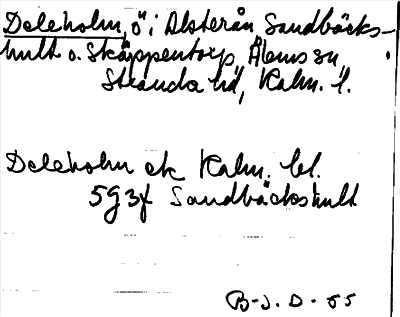 Deleholm, ö i Alsterån Sandbäcks-
hult o. Skäppentorp, Ålems sn,
Stranda hd, Kalm. l.
Deleholm ek Kalm. bl.
5G3f Sandbäckshult
B-J. D-55